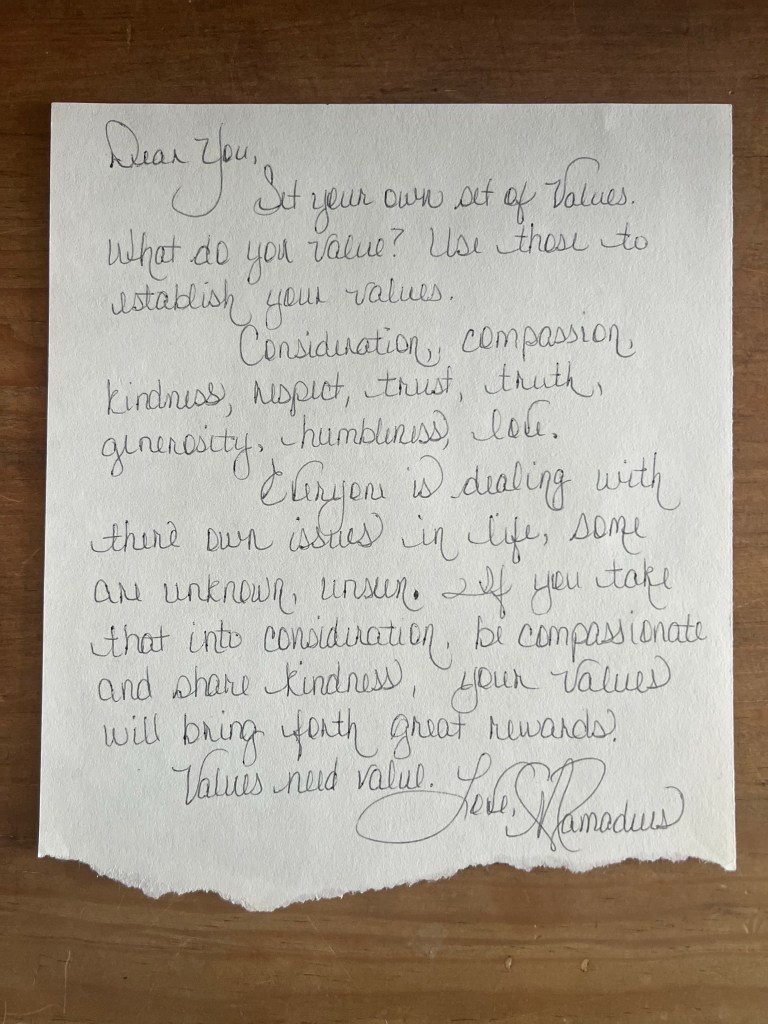 Dear You,
Set your own set of Values.
What do you value? Use those to
establish your values.
Consideration, compassion,
kindness, respect, trust, truth,
generosity, humbleness, love.
Everyone is dealing with
there own issues in life, some
are unknown, unseen. If you take
that into consideration, be compassionate
and share kindness, your values
will bring forth great rewards.
Values need value. Love,